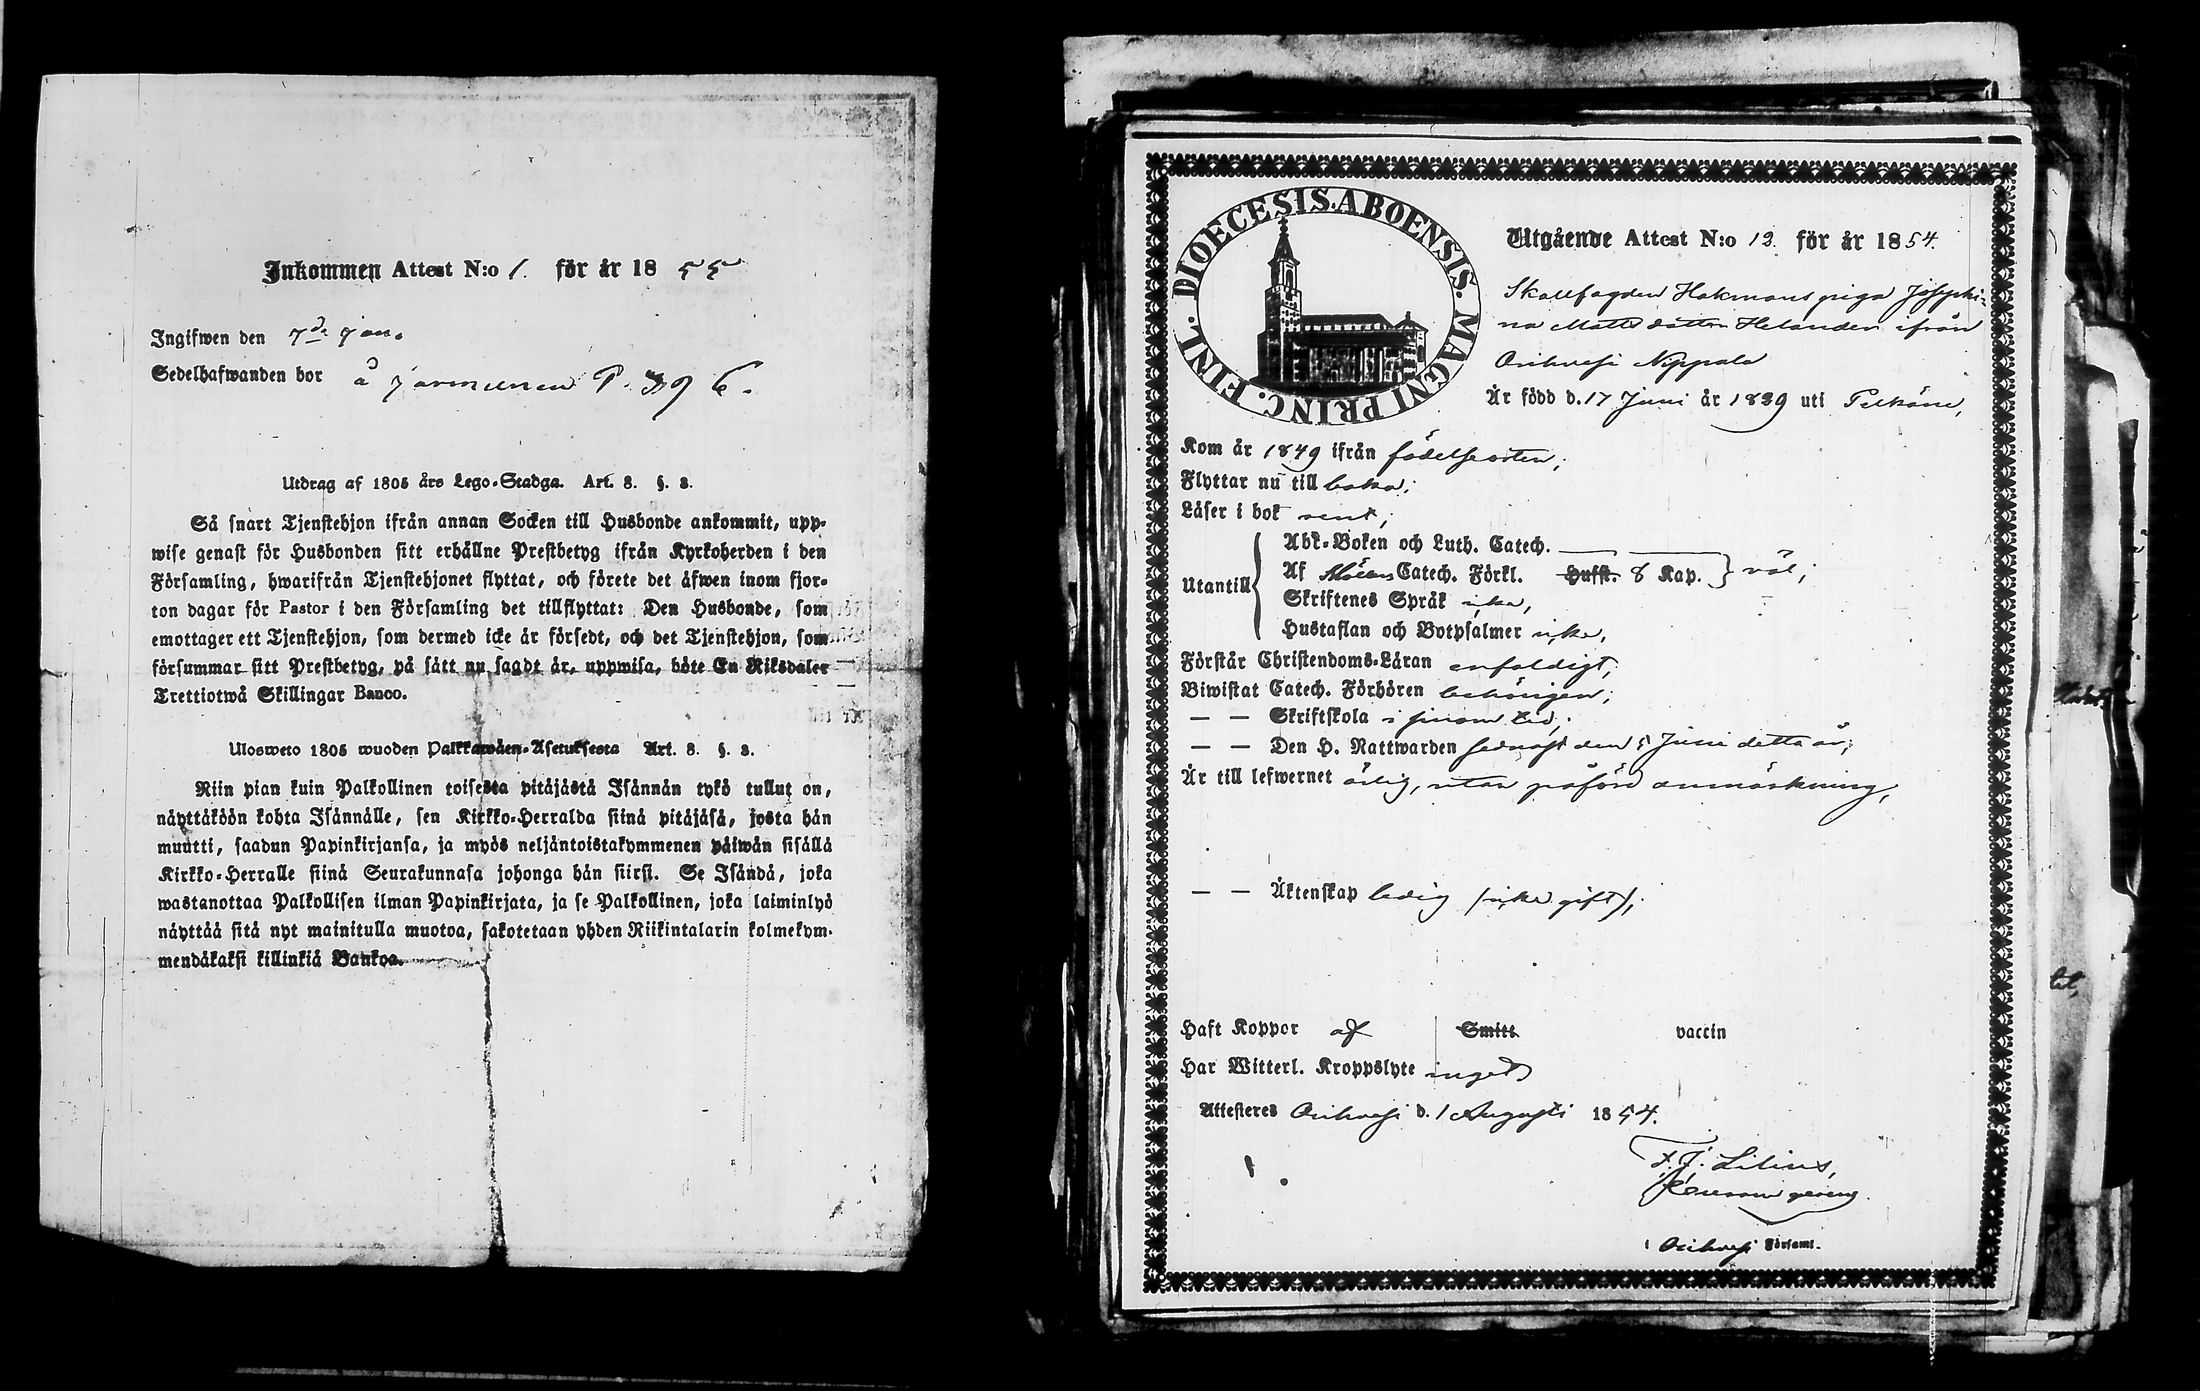 Inkommen Attest N:o 1. för år 1855
Ingifwen den 7de Jan.
Sedelhafwanden bor å P. 396.
Utdrag af 1805 års Lego-Stadga. Art. 8. §. 8.
Så snart Tjenstehjon ifrån annan Socken till Husbonde ankommit, upp-
wise genast för Husbonden sitt erhållne Prestbetyg ifrån Kyrkoherden i den
Församling, hwarifrån Tjenstehjonet flyttat, och förete det äfwen inom fjor-
ton dagar för Pastor i den Församling det tillflyttat: Den Husbonde, som
emottager ett Tjenstehjon, som dermed icke är försedt, och det Tjenstehjon, som
försummar sitt Prestbetyg, på sätt nu sagdt är, uppwisa, böte En Riksdaler
Trettiotwå Skillingar Banco.
Ulosweto 1805 wuoden Palkkawäen-Asetuksesta Art. 8. §. 8.
Niin pian kuin Palkollinen toisesta pitäjästä Isännän tykö tullut on,
näyttäköön kohta Isännälle, sen Kirkko-Herralda siinä pitäjäsä, josta hän
muutti, saadun Papinkirjansa, ja myös neljäntoistakymmenen päiwän sisällä
Kirkko-Herralle siinä Seurakunnasa johonga hän siirsi. Se Isändä, joka
wastanottaa Palkollisen ilman Papinkirjata, ja se Palkollinen, joka laiminlyö
näyttää sitä nyt mainitulla muotoa, sakotetaan yhden Riikintalarin kolmekym-
mendäkaksi killinkiä Bankoa.
DIOECESIS. ABOENSIS. MAGNI PRINC. FINL.
Utgående Attest N:o 12. för år 1854.
Skallfogden Hakmans piga Josephi-
na Mattsdotter Helander ifrån
Orihvesi Nippala
Är född d. 17 Juni år 1839 uti Pelkäne,
Kom år 1849 ifrån födelseorten;
Flyttar nu till baka;
Läser i bok rent;
Utantill
Abk-Boken och Luth. Catech.
Af Möllers Catech. Förkl. Husst. 8 Kap. } väl;
Skriftenes Språk icke,
Hustaflan och Botpsalmer icke,
Förstår Christendoms-Läran enfaldigt;
Biwistat Catech. Förhören behörigen;
— — Skriftskola i sinom tid;
— — Den H. Nattwarden sednast den 5 Juni detta år;
Är till lefwernet ärlig, utan påförd anmärkning,
— — Äktenskap ledig (icke gift);
Haft Koppor af Smitt vaccin
Har Witterl. Kroppslyte inget
Attesteres Orihvesi d. 1 Augusti 1854.
F. J. Lilius,
i Orihvesi Församl.